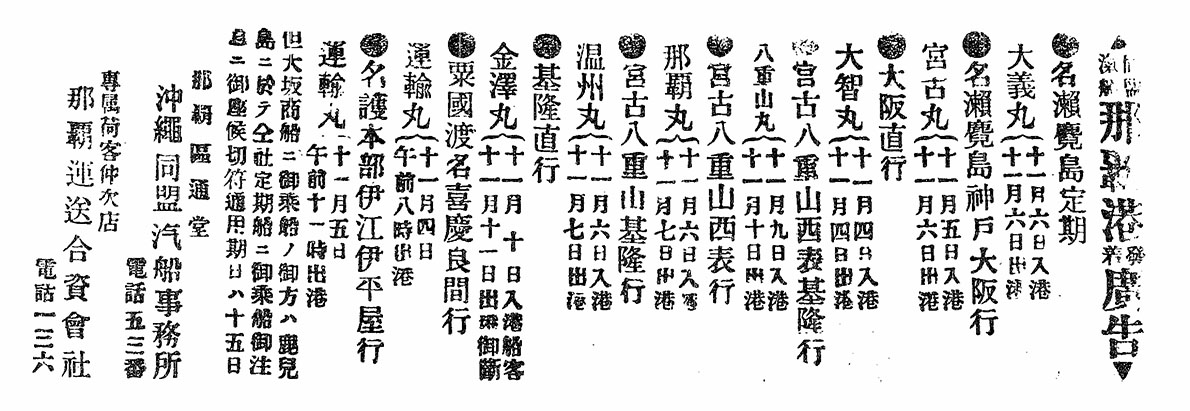 汽船那覇港發着廣告
●名瀨麑島定期
大義丸(十一月六日入港
十一月六日出港
●名瀨麑島神戸大阪行
宮古丸(十一月五日入港
十一月六日出港
●大阪直行
大智丸(十一月四日入港
十一月四日出港
●宮古八重山西表基隆行
八重山丸(十一月九日入港
十一月十日出港
●宮古八重山西表行
那覇丸(十一月六日入港
十一月七日出港
●宮古八重山基隆行
温州丸(十一月六日入港
十一月七日出港
●基隆直行
金澤丸(十一月十日入港船客
十一月十一日出港御斷
●粟國渡名喜慶良間行
運輸丸(十一月四日
午前八時出港
●名護本部伊江伊平屋行
運輸丸(十一月五日
午前十一時出港
但大坂商船ニ御乘船ノ御方ハ鹿兒
島ニ於テ仝社定期船ニ御乘船御注
意ニ御座候切符通用期日ハ十五日
那覇區通堂
沖繩同盟汽船事務所
電話五三番
專属荷客仲次店
那覇運送合資會社
電話一三六